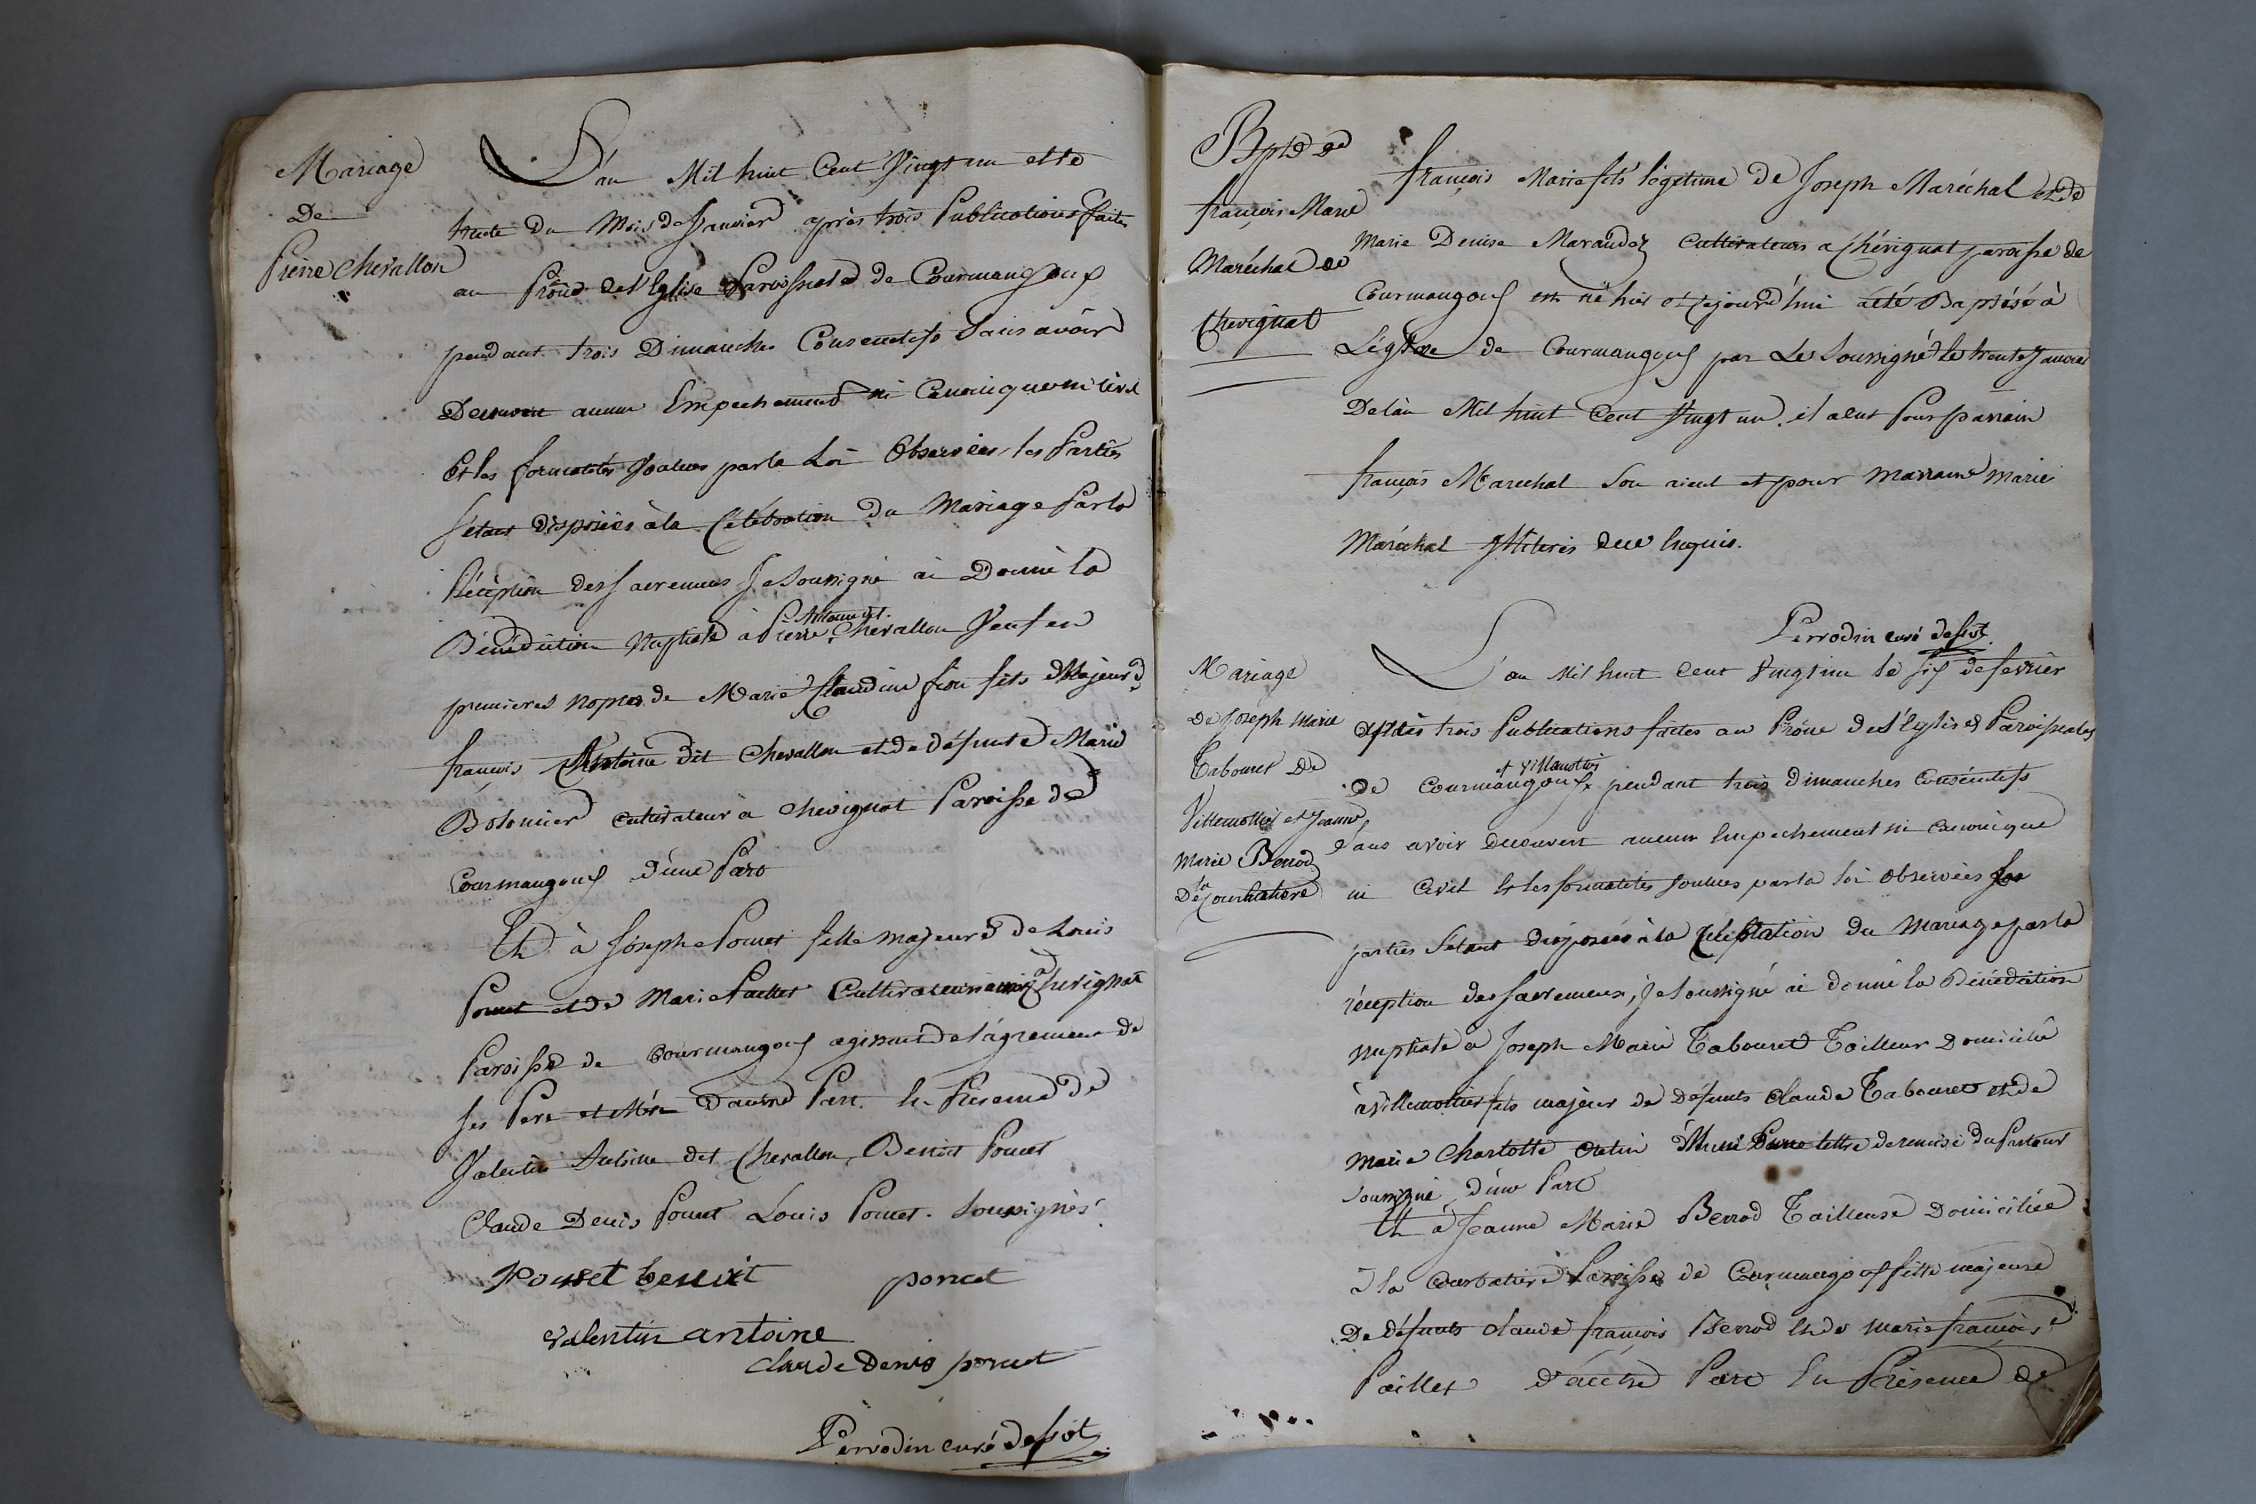 Mariage
De
Pierre Chevallon
L'an Mil huit Cent Vingt un et le
trente du Mois de Janvier après trois Publications faites
au Prône de l'Eglise Paroissiale de Courmangoux
pendant trois Dimanches Consecutifs Sans avoir
Decouvert aucun Empechement ni Canonique ni Civil
Et les formalités Voulues par la Loi Observées, les Parties
S'étant disposées à la Célébration du Mariage Par la
Réception des Sacremens Je Soussigné ai Donné la
Bénédiction Nuptiale à Pierre Antoine dit Chevallon Veuf en
premieres nopces de Marie Claudine fion fils Majeur de
françois Antoine dit Chevallon et de défunte Marie
Bolomier cultivateur à Chevignat Paroisse de
Courmangoux d'une Part
Et à Josephe Poncet fille majeure de Louis
Poncet et de Marie Paillet Cultivateurs à Chevignat
Paroisse de Courmangoux agissant de l'agrement de
ses Pere et Mère D'autre Part. En Présence de
Valentin Antoine dit Chevallon, Benoit Poncet
Claude Denis Poncet Louis Poncet. Soussignés
Ponset benoit poncet
valentin antoine
claude Denis poncet
Perrodin curé dessvt
Bpte de
françois Marie
Maréchal de
Chevignat
françois Marie fils légitime de Joseph Maréchal et de
Marie Denise Marandez Cultivateurs a Chévignat paroisse de
Courmangoux est né hier et cejourd'hui a été Baptisé à
L'église de Courmangoux par Le Soussigné le trente Janvier
De l'an Mil huit Cent Vingt un. il a eut Pour parrain
françois Marechal Son aieul et pour Marraine Marie
Maréchal Illiteris de re enquis.
Perrodin curé dessvt.
Mariage
De Joseph Marie
Tabouret De
Villemottier et Jeanne
Marie Berrod
De la Courbatiere
L'an Mil huit Cent Vingt un le six de fevrier
après trois Publications faites au Prône de l'Eglises Paroissiales
de Courmangoux et Villemottier pendant trois dimanches consécutifs
Sans avoir decouvert aucun Empechement ni canonique
ni Civil Et les formalités Voulues par la loi Observées les
parties S'etant disposées à la Célébration du Mariage par la
réception des sacremens, je Soussigné ai donné la Bénédiction
Nuptiale a Joseph Marie Tabouret Tailleur Domicilié
à Villemottier fils majeur de Défunts Claude Tabouret et de
Marie Charlotte Muni d'une lettre de remise du Pasteur
soussigné d'une Part
Et à Jeanne Marie Berrod Tailleuse Domiciliée
à la Courbatiere Paroisse de Courmangoux fille majeure
De défunts claude françois Berrod Et de marie françoise
Paillet d'autre Part En Présence de